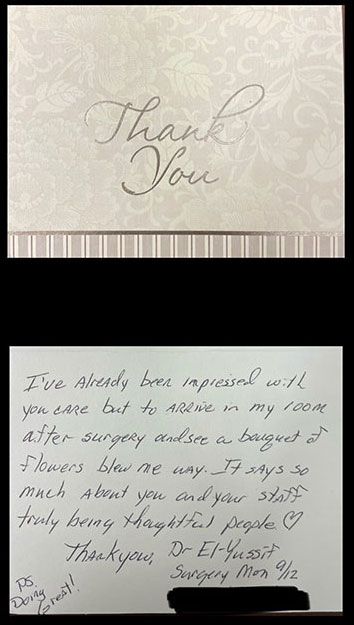 Thank
You
I've Already been impressed with
you CARE but to ARRIVE in my room
after surgery and see a bouquet of
flowers blew me way. It says so
much About you and your staff
truly being thoughtful people ♡
Thankyou, Dr El-Yussif
Surgery Mon 9/12
PS.
Doing
Great!